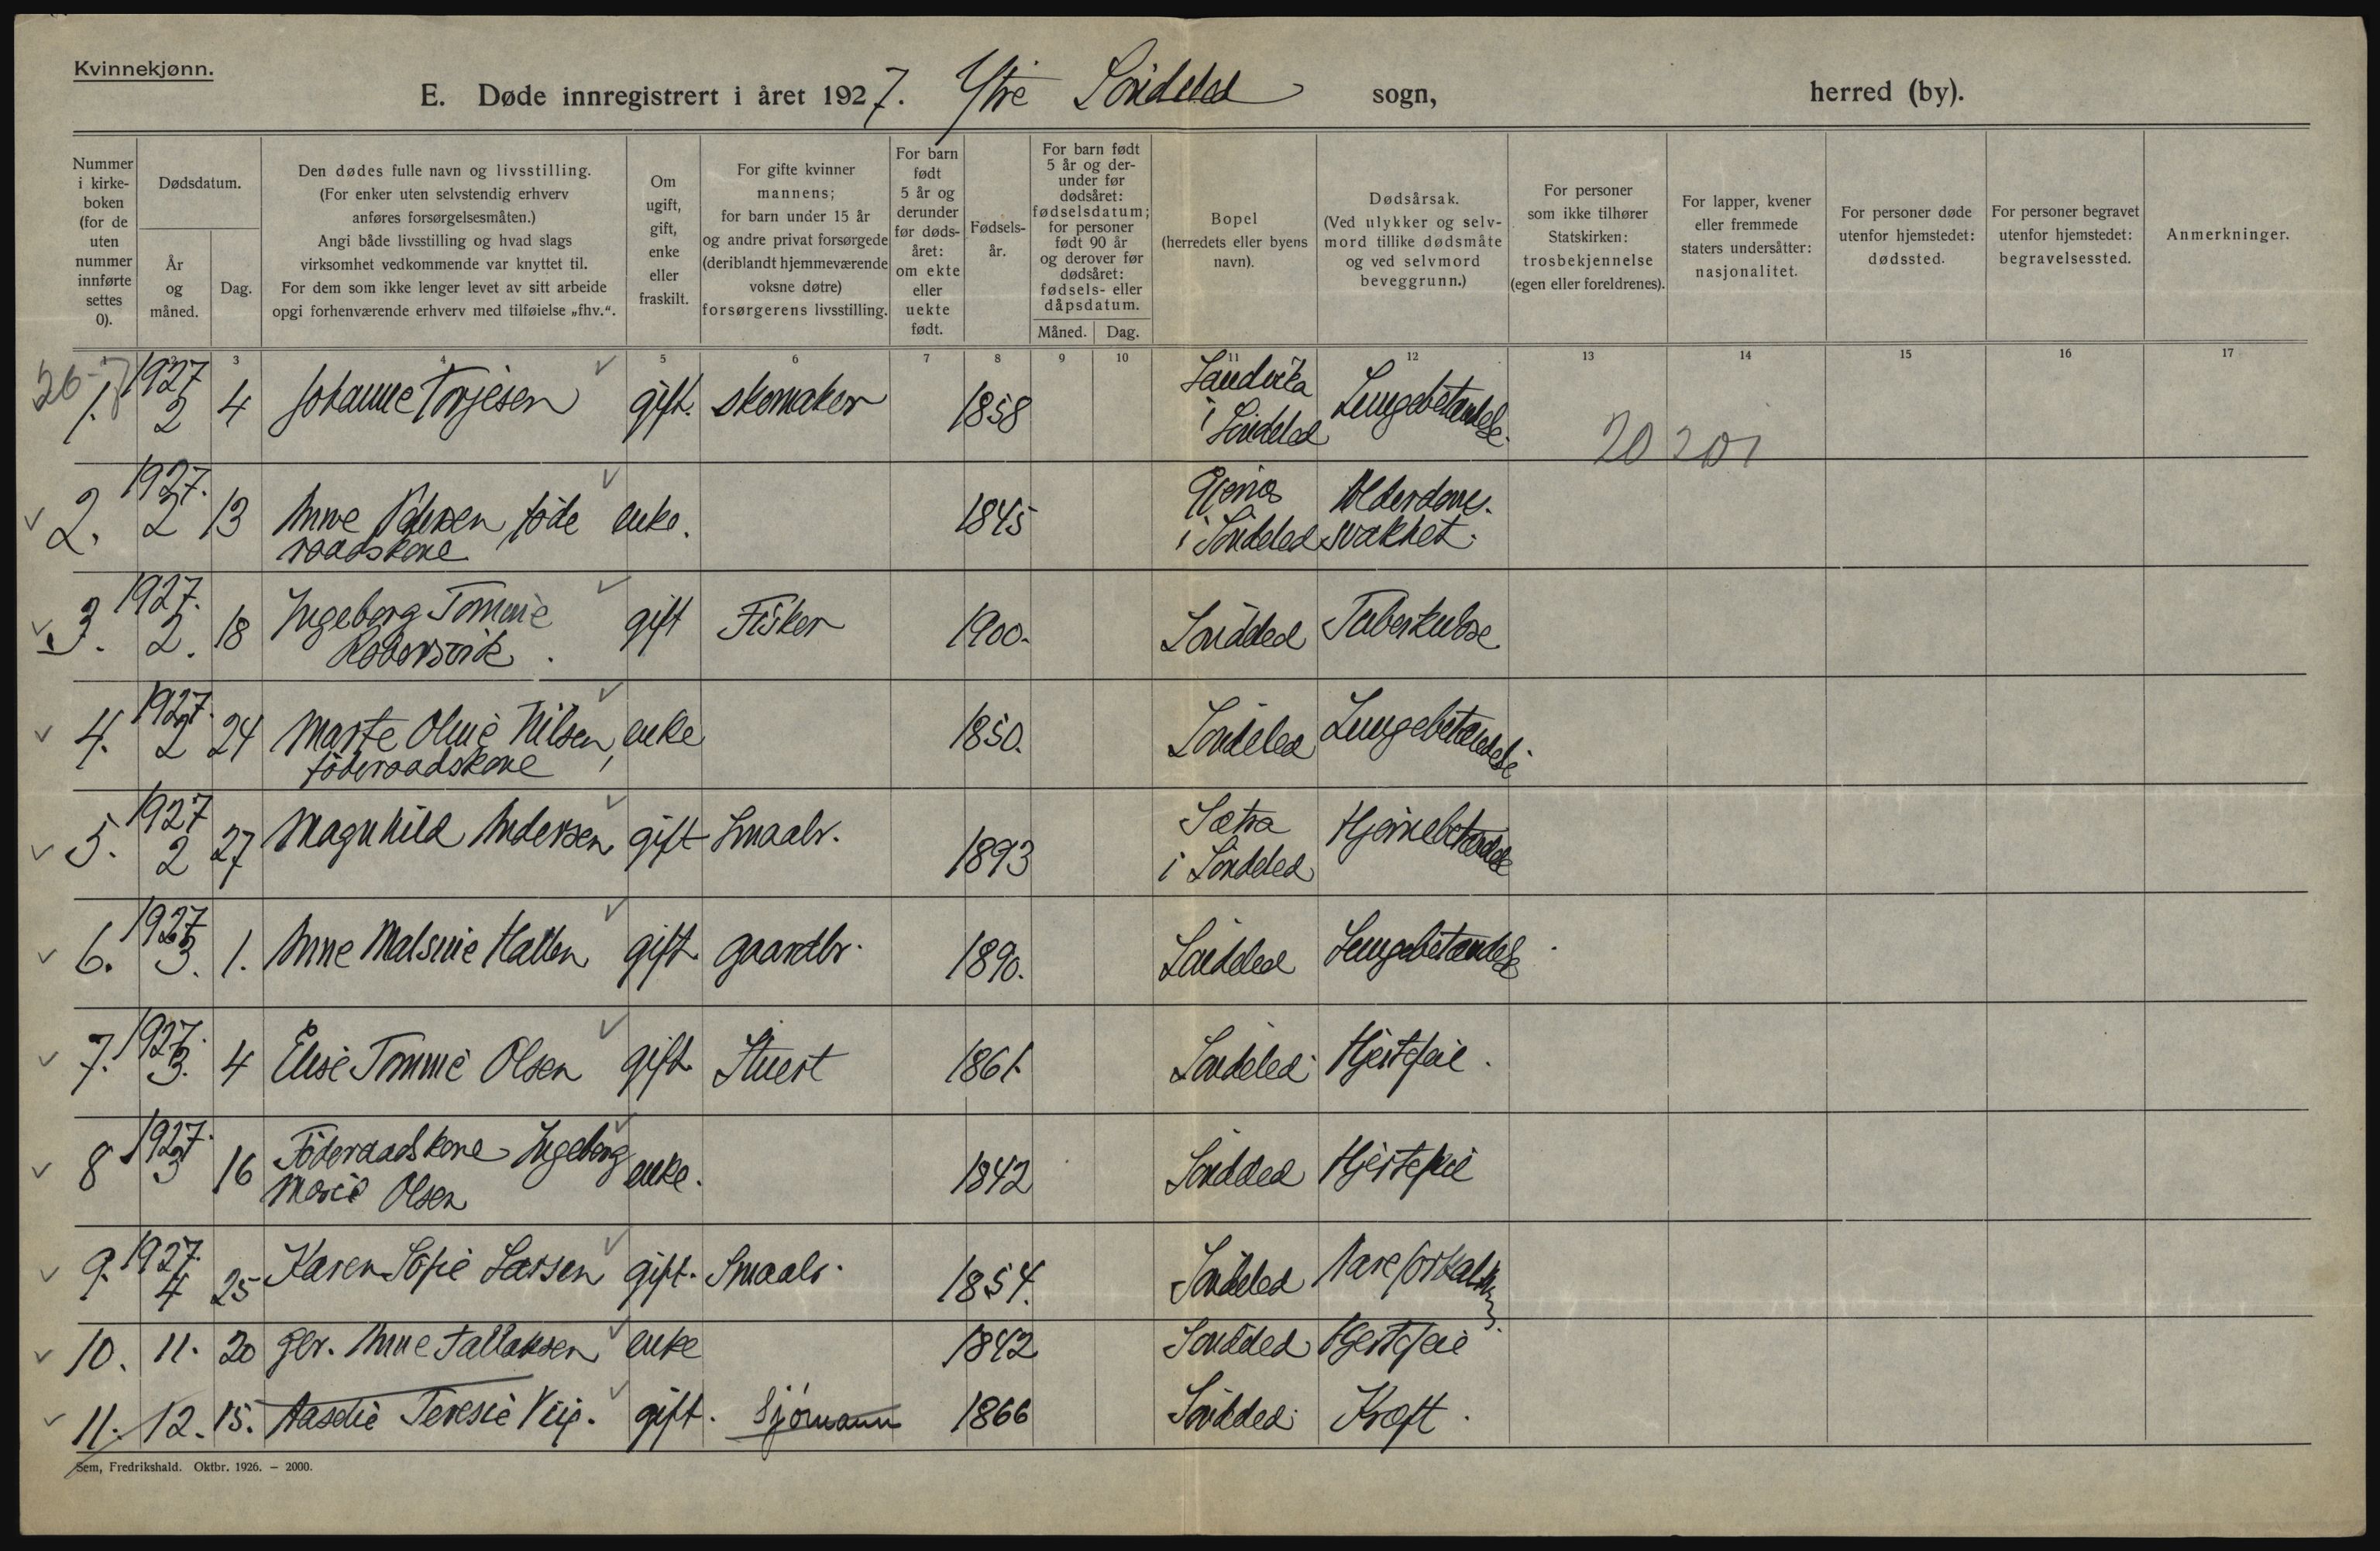 Kvinnekjønn.
E. Døde innregistrert i året 1927. Ytre Söndeled sogn, herred (by).
Nummer i kirke-boken (for de uten nummer innførte settes 0).
Dødsdatum.
År og måned.
Dag.
Den dødes fulle navn og livsstilling.
(For enker uten selvstendig erhverv
anføres forsørgelsesmåten.)
Angi både livsstilling og hvad slags
virksomhet vedkommende var knyttet til.
For dem som ikke lenger levet av sitt arbeide
opgi forhenværende erhverv med tilføielse „fhv.“.
Om ugift, gift, enke eller fraskilt.
For gifte kvinner
mannens;
for barn under 15 år
og andre privat forsørgede
(deriblandt hjemmeværende
voksne døtre)
forsørgerens livsstilling.
For barn født 5 år og derunder før døds-året: om ekte eller uekte født.
Fødsels-år.
For barn født
5 år og der-
under før
dødsåret:
fødselsdatum;
for personer
født 90 år
og derover før
dødsåret:
fødsels- eller
dåpsdatum.
Måned. Dag.
Bopel
(herredets eller byens
navn).
Dødsårsak.
(Ved ulykker og selv-
mord tillike dødsmåte
og ved selvmord
beveggrunn.)
For personer
som ikke tilhører
Statskirken:
trosbekjennelse
(egen eller foreldrenes).
For lapper, kvener
eller fremmede
staters undersåtter:
nasjonalitet.
For personer døde
utenfor hjemstedet:
dødssted.
For personer begravet
utenfor hjemstedet:
begravelsessted.
Anmerkninger.
1 2 3 4 5 6 7 8 9 10 11 12 13 14 15 16 17
1. 1927 2 4 Johanne Torjesen gift. skomaker 1858 Sandvika i Söndeled Lungebetændelse. 20 201
2. 1927. 2 13 Anne Pedersen föde raadskone enke. 1845 i Söndeled Alderdoms. svakhet.
3. 1927. 2. 18 Ingeborg Tomine gift Fisker 1900. Söndeled Tuberkulose
4. 1927. 2 24 Marte Oline Nilsen, föderaadskone enke 1850. Söndeled Lungebetændelse
5. 1927 2 27 Magnhild Andersen gift Smaabr. 1893 Sætra i Söndeled Hjernebetændelse
6. 1927 3. 1. Anne Malvine Hallen gift gaardbr. 1890. Söndeled Lungebetændelse
7. 1927. 3. 4 Elise Tomine Olsen gift Stuert 1861. Söndeled Hjertefeil.
8 1927. 3 16 Föderaadskone Ingeborg Marie Olsen enke. 1842 Söndeled Hjertefeil
9. 1927. 4 25 Karen Sofie Larsen gift. Smaabr. 1854. Söndeled Aareforkalkning.
10. 11. 20 gbr. Anne Tallaksen enke 1842 Söndeled Hjertefeil
11. 12. 15. Aaselie Teresie gift. Sjömann 1866 Söndeled Kræft.
Sem, Fredrikshald. Oktbr. 1926. — 2000.